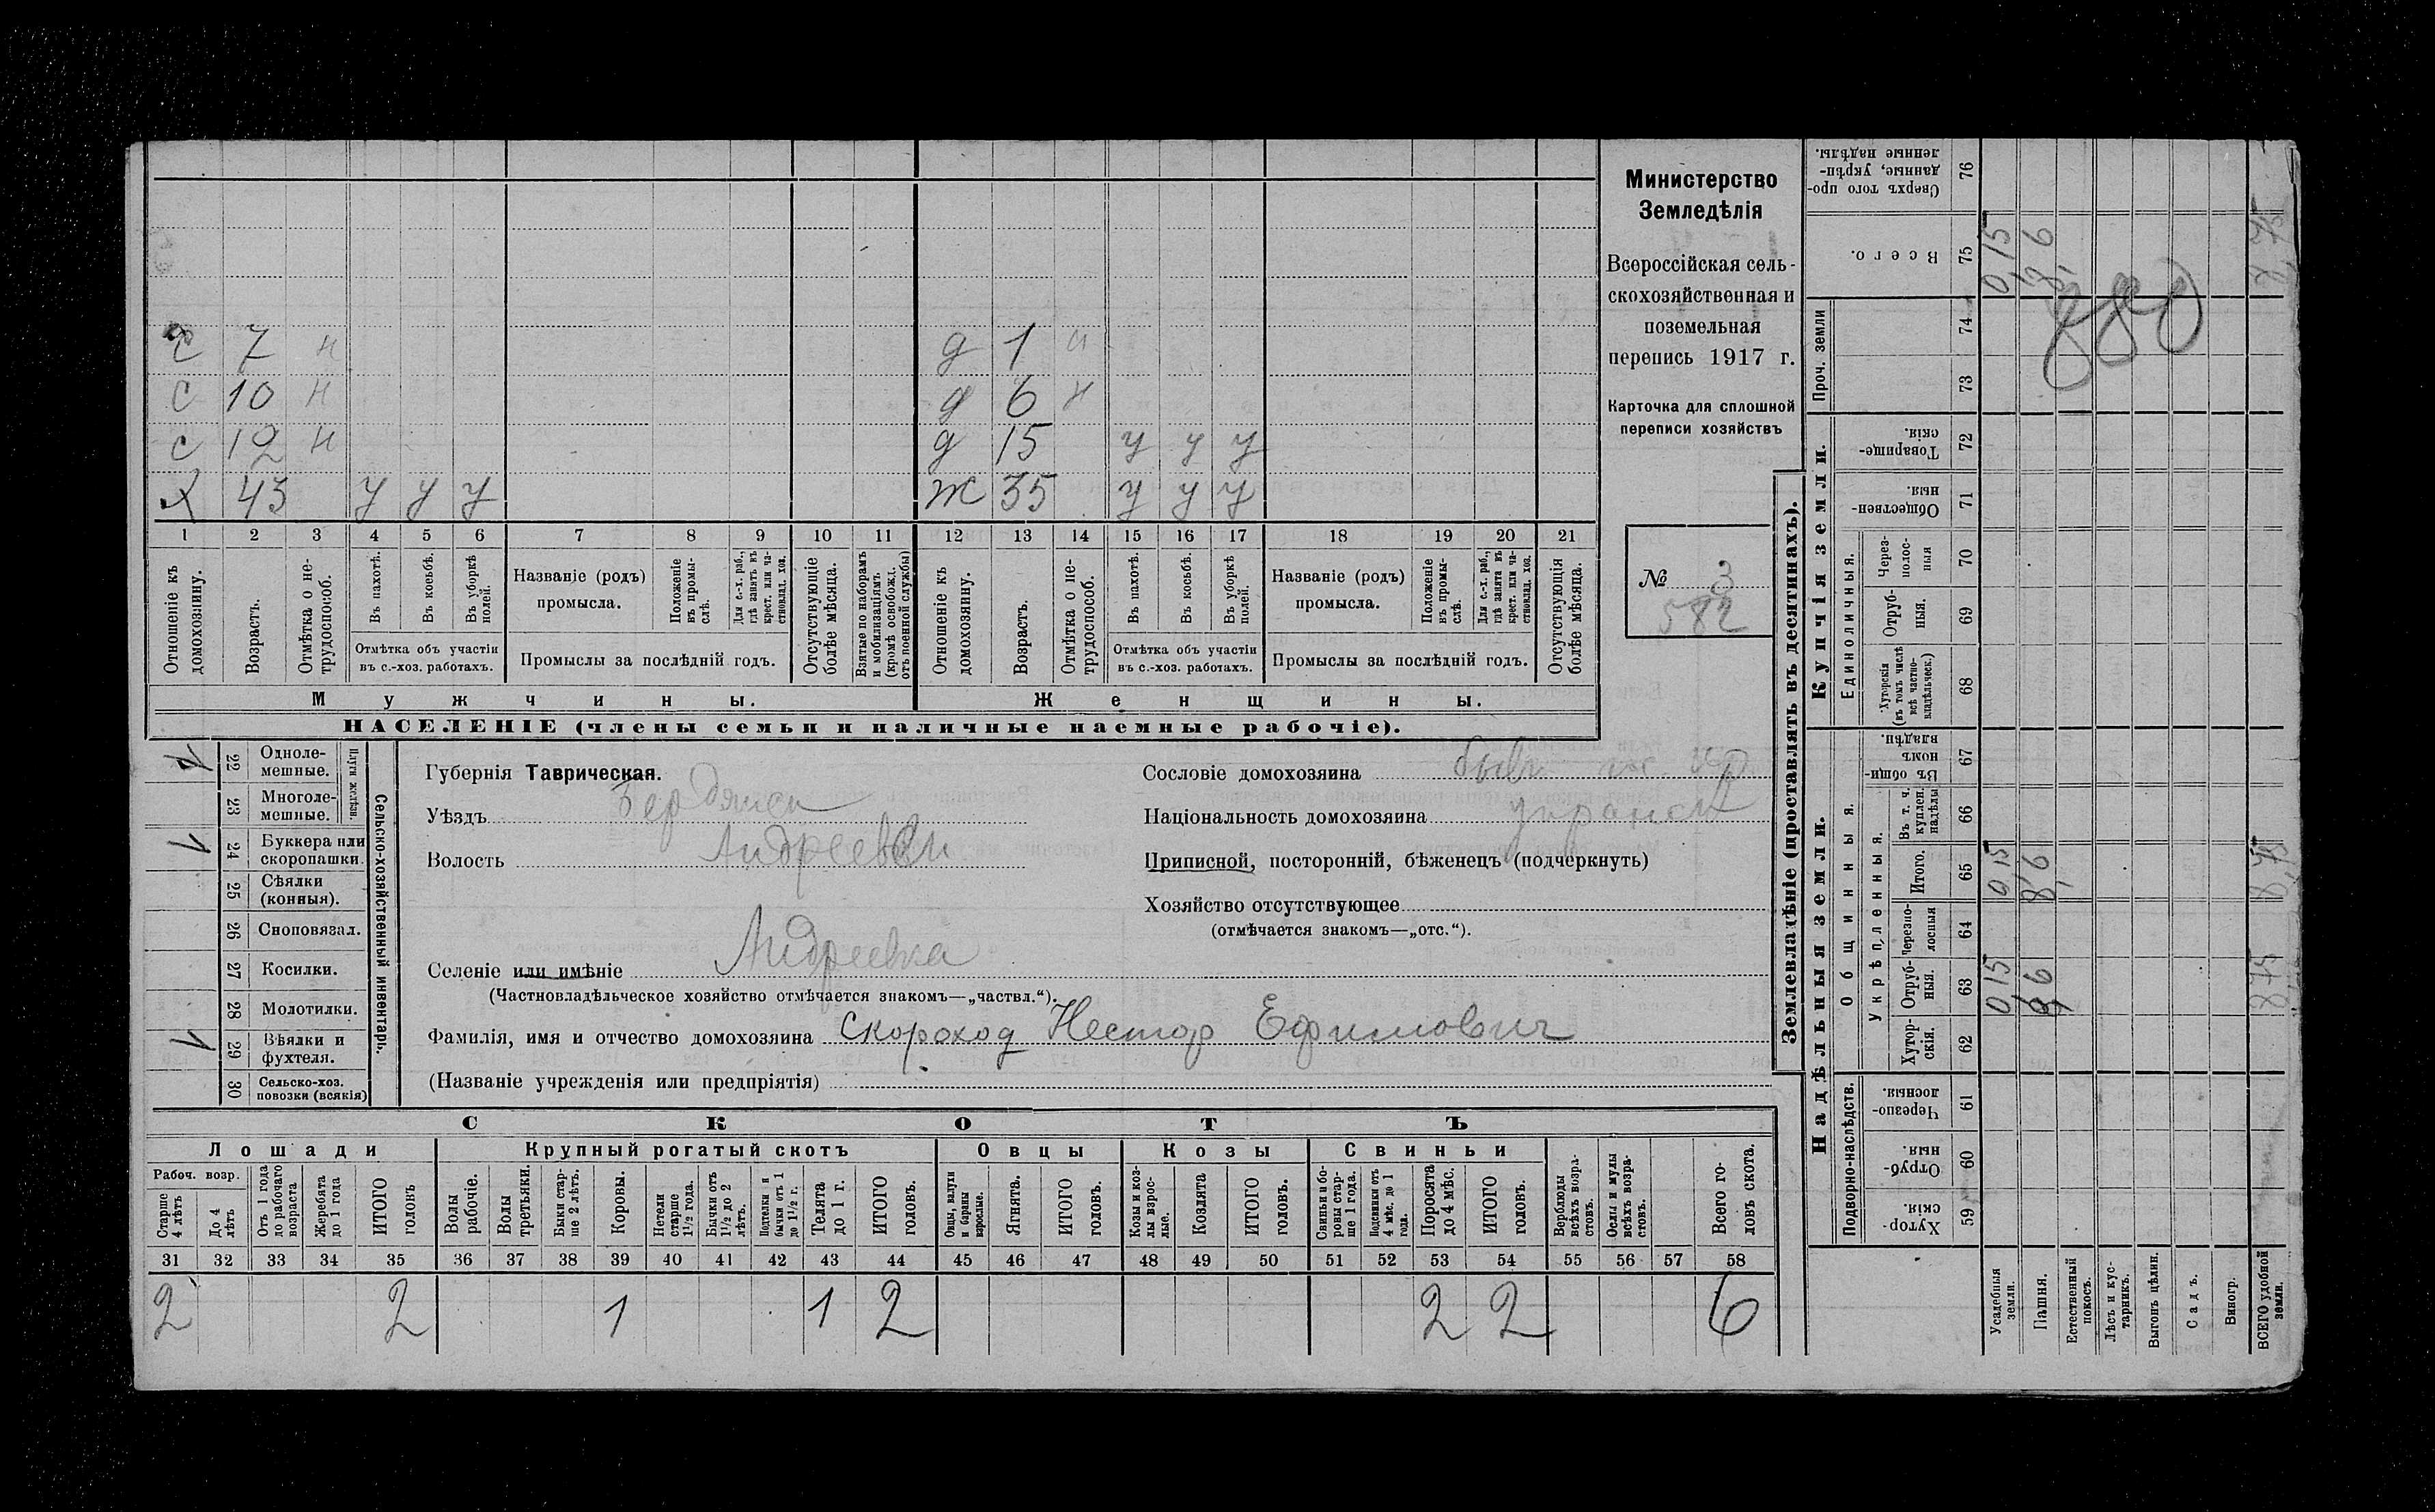 с 7 н
с 10 н
с 12 н
х 43 у у у
д 1 н
д 6 н
д 15 у у у
ж 35 у у у
1 2 3 4 5 6 7 8 9 10 11 12 13 14 15 16 17 18 19 20 21
Отношеніе къ домохозяину.
Возрастъ.
Отмѣтка о нетрудоспособ.
Въ пахотѣ.
Въ косьбѣ.
Въ уборкѣ полей.
Отмѣтка объ участіи
въ с.-хоз. работахъ.
Названіе (родъ)
промысла.
Положеніе въ промы-
слѣ.
Для с.-х. раб.,
гдѣ занятъ въ
крест. или ча-
стновлад. хоз.
Промыслы за послѣдній годъ.
Отсутствующіе
болѣе мѣсяца.
Взятые по наборамъ
и мобилизаціямъ
(кромѣ освобожд.
отъ военной службы)
Отношеніе къ
домохозяину.
Возрастъ.
Отмѣтка о не-
трудоспособ.
Въ пахотѣ.
Въ косьбѣ.
Въ уборкѣ
полей.
Отмѣтка объ участіи
въ с.-хоз. работахъ.
Названіе (родъ)
промысла.
Положеніе
въ промы-
слѣ.
Для с.-х. раб.,
гдѣ занята въ
крест. или ча-
стновлад. хоз.
Промыслы за послѣдній годъ.
Отсутствующія
болѣе мѣсяца.
Мужчины.
Женщины.
НАСЕЛЕНІЕ (члены семьи и наличные наемные рабочіе).
Министерство
Земледѣлія
Всероссійская сель-
скохозяйственная и
поземельная
перепись 1917 г.
Карточка для сплошной
переписи хозяйствъ
№ 3
582
22 Одноле-
мешные.
23 Многоле-
мешные.
Плуги желѣзн.
1 24 Буккера или
скоропашки.
25 Сѣялки
(конныя).
26 Сноповязал.
27 Косилки.
28 Молотилки.
1 29 Вѣялки и
фухтеля.
30 Сельско-хоз.
повозки (всякія)
Сельско-хозяйственный инвентарь.
Губернія Таврическая.
Уѣздъ Бердянск
Волость Андреевск
Селеніе или имѣніе Андреевка
(Частновладѣльческое хозяйство отмѣчается знакомъ—„частвл.“).
Фамилія, имя и отчество домохозяина Скороход Нестор Ефимович
(Названіе учрежденія или предпріятія)
Сословіе домохозяина быв
Національность домохозяина
Приписной, посторонній, бѣженецъ (подчеркнуть)
Хозяйство отсутствующее
(отмѣчается знакомъ—„отс.“).
СКОТЪ
Лошади
Крупный рогатый скотъ
Овцы
Козы
Свиньи
Рабоч. возр.
Старше
4 лѣтъ
До 4
лѣтъ
Отъ 1 года
до рабочаго
возраста
Жеребята
до 1 года
ИТОГО
головъ
Волы
рабочіе.
Волы
третьяки.
Быки стар-
ше 2 лѣтъ.
Коровы.
Нетели
старше
1½ года.
Бычки отъ
1½ до 2
лѣтъ.
Подтелки и
бычки отъ 1
до 1½ г.
Телята
до 1 г.
ИТОГО
головъ.
Овцы, валухи
и бараны
взрослые.
Ягнята.
ИТОГО
головъ.
Козы и коз-
лы взрос-
лые.
Козлята
ИТОГО
головъ.
Свиньи и бо-
ровы стар-
ше 1 года.
Подсвинки отъ
4 мѣс. до 1
года.
Поросята
до 4 мѣс.
ИТОГО
головъ.
Верблюды
всѣхъ возра-
стовъ.
Ослы и мулы
всѣхъ возра-
стовъ.
Всего го-
ловъ скота.
31 32 33 34 35 36 37 38 39 40 41 42 43 44 45 46 47 48 49 50 51 52 53 54 55 56 57 58
2 2 1 1 2 2 2 6
Землевладѣніе (проставлять въ десятинахъ).
Надѣльныя земли.
Купчія земли.
Проч. земли
Подворно-наслѣдств.
Общинныя.
Укрѣпленныя.
Единоличныя.
Хутор-
скія. 59
Отруб-
ныя. 60
Черезпо-
лосныя. 61
Хутор-
скія. 62
Отруб-
ныя. 63
Черезпо-
лосныя 64
Итого. 65
Въ т. ч.
куплен.
надѣлы 66
Въ общин-
номъ
владѣн. 67
Хуторскія
(въ томъ числѣ
всѣ частно-
владѣльческ.) 68
Отруб-
ныя. 69
Через-
полос-
ныя 70
Обществен-
ныя. 71
Товарище-
скія. 72
73
74
Всего. 75
Сверхъ того про-
данные, укрѣп-
ленные надѣлы. 76
Усадебныя
земли. 015 015 015
Пашня. 8,6 8,6 8,6
Естественный
покосъ.
Лѣсъ и кус-
тарникъ.
Выгонъ цѣлин.
Садъ.
Виногр.
ВСЕГО удобной
земли. 8,75 8,75 8,75
880